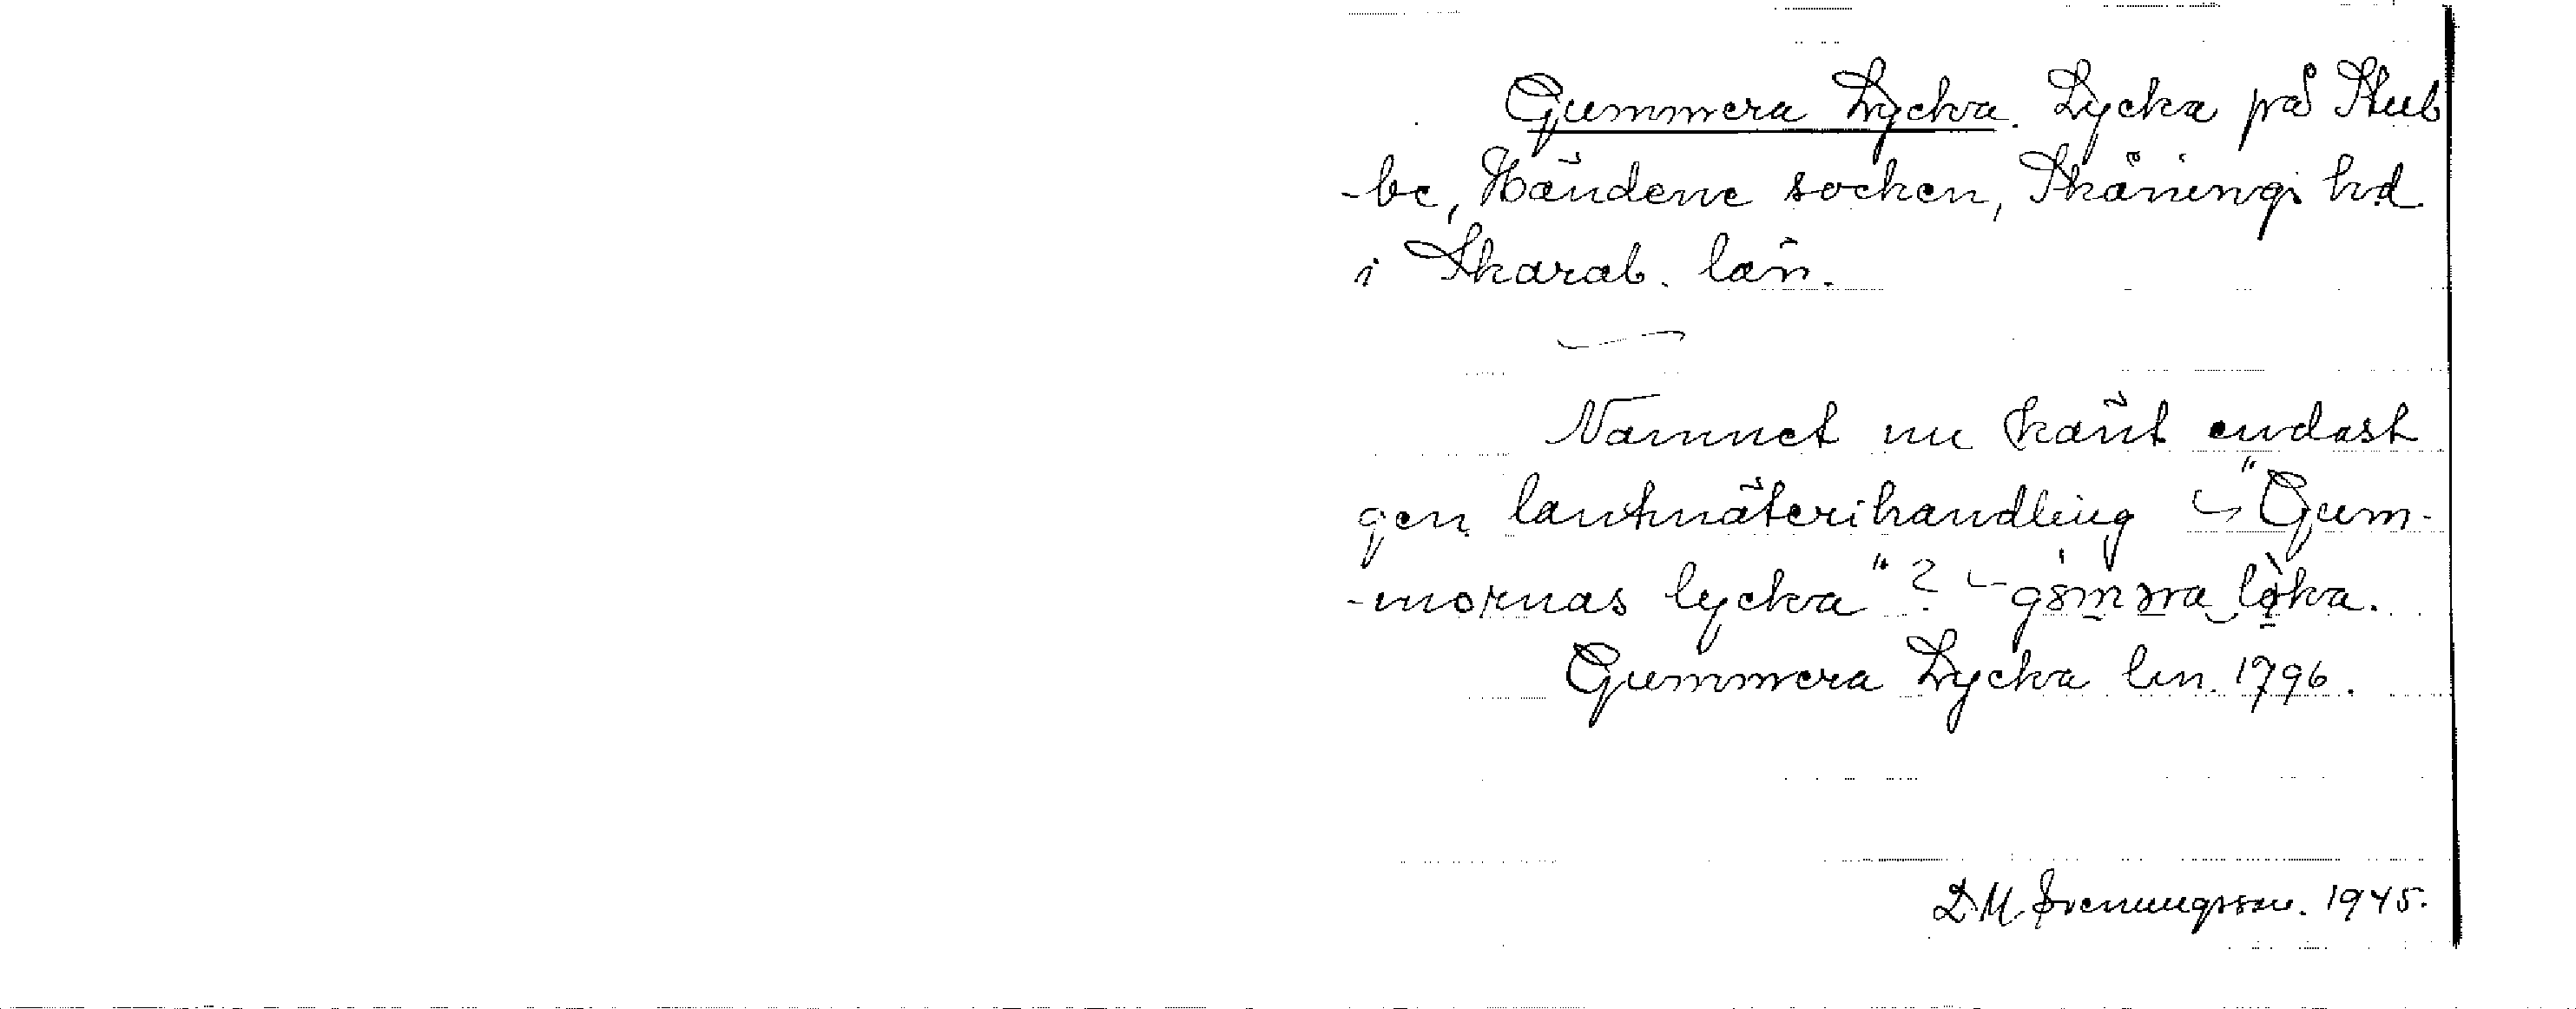 Gummera Lycka. Lycka på Stub
-be, Händene socken, Skånings hd.
i Skarab. län.
Namnet nu känt endast
gen. lantmäterihandling "Gum-
-mornas lycka"?
Gummera Lycka lm. 1796.
D M Svenungsson. 1945.